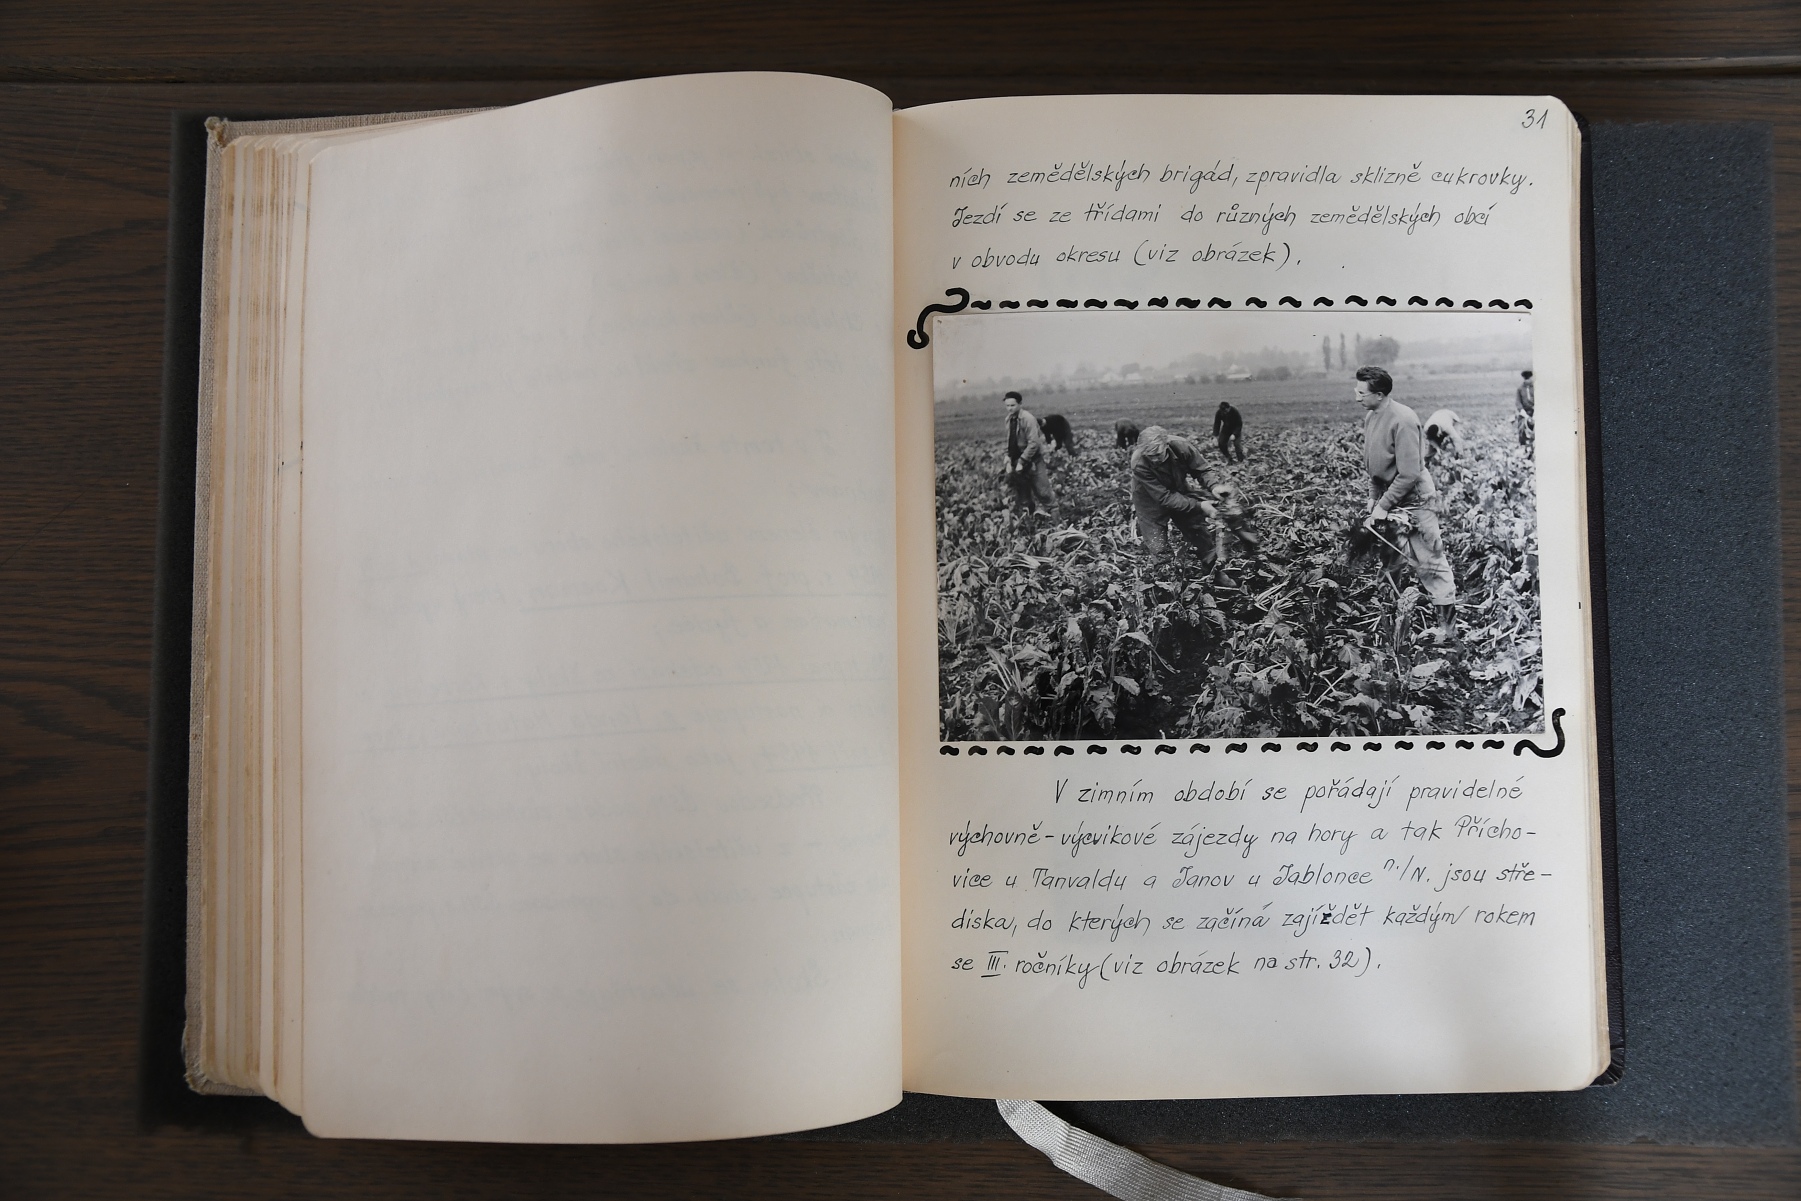 31
ních zemědělských brigád, zpravidla sklizně cukrovky.
Jezdí se ze třídami do různých zemědělských obcí
v obvodu okresu (viz obrázek).
V zimním období se pořádají pravidelné
výchovně-výcvikové zájezdy na hory a tak Přícho-
vice u Tanvaldu a Janov u Jablonce n./N. jsou stře-
diska, do kterých se začíná zajíždět každým rokem
se III. ročníky (viz obrázek na str. 32).